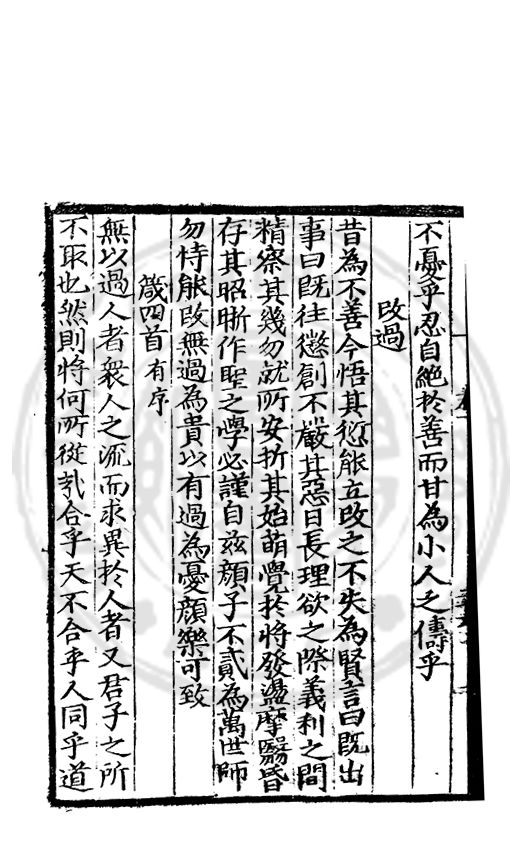 不憂乎忍自絶於善而甘為小人之儔乎
改過
昔為不善今悟其愆能立改之不失為賢言曰既出
事曰既往懲創不嚴其惡日長理欲之際義利之間
精察其幾勿就所安折其始萌覺於將發盪摩翳昏
存其昭晣作聖之學必謹自兹顔子不貳為萬世師
勿恃能改無過為貴以有過為憂顔樂可致
箴四首有序
無以過人者衆人之流而求異於人者又君子之所
不取也然則將何所從哉合乎天不合乎人同乎道